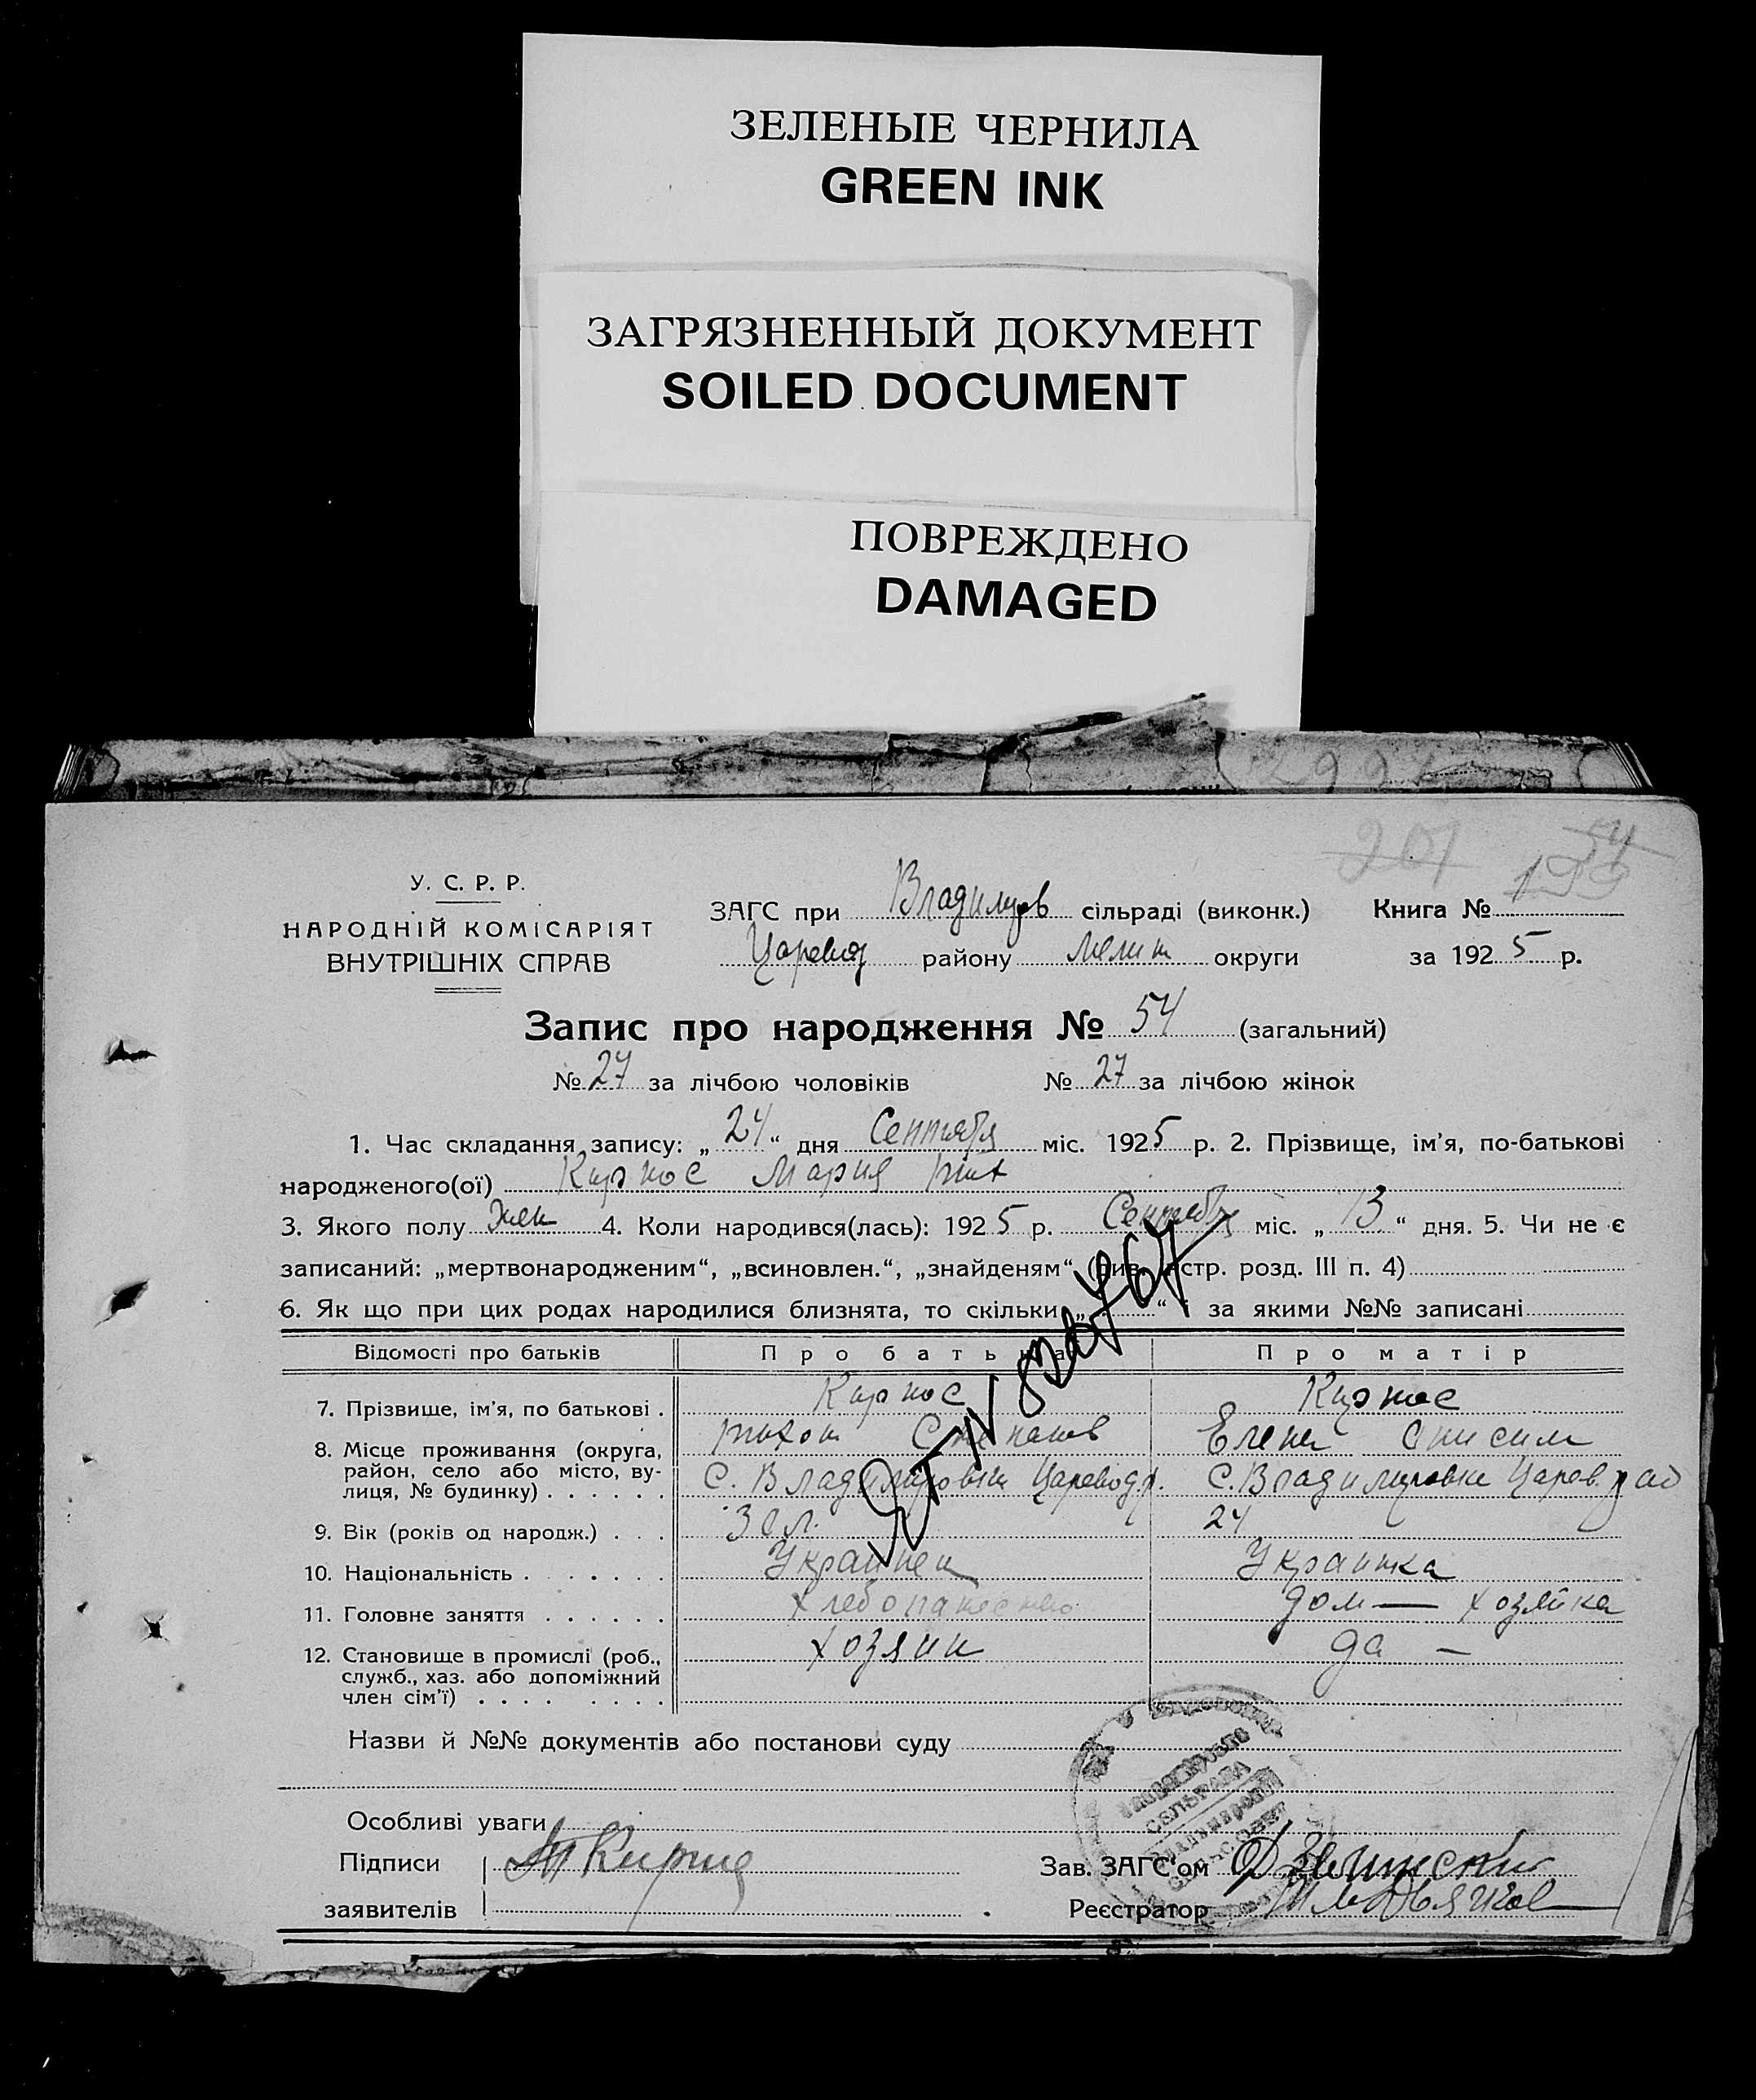 ЗЕЛЕНЫЕ ЧЕРНИЛА
GREEN INK
ЗАГРЯЗНЕННЫЙ ДОКУМЕНТ
SOILED DOCUMENT
ПОВРЕЖДЕНО
DAMAGED
201 54
У. С. Р. Р.
НАРОДНІЙ КОМІСАРІЯТ
ВНУТРІШНІХ СПРАВ
ЗАГС при Владимров сільраді (виконк.) Книга №
Царевод району Мелит округи за 1925 р.
Запис про народження № 54 (загальний)
№ 27 за лічбою чоловіків № 27 за лічбою жінок
1. Час складання запису: „24“ дня Сентября міс. 1925 р. 2. Прізвище, ім’я, по-батькові
народженого(ої) Кирнос Мария Тих
3. Якого полу Жен 4. Коли народився(лась): 1925 р. Сентябр міс. „13“ дня. 5. Чи не є
записаний: „мертвонародженим“, „всиновлен.“, „знайденям“ (див. стр. розд. III п. 4)
6. Як що при цих родах народилися близнята, то скільки „ “ і за якими №№ записані
Відомості про батьків Про батька Про матір
7. Прізвище, ім’я, по батькові . Кирнос Кирнос
Тихон Степанов Елена Онисим
8. Місце проживання (округа,
район, село або місто, ву-
лиця, № будинку) . . . . . . С. Владимировки Царевод р. С. Владимировки Царев. рай
9. Вік (років од народж.) . . . 30 л. 24
10. Національність . . . . . . Украинец Украинка
11. Головне заняття . . . . . . Хлебопашество дом — хозяйка
12. Становище в промислі (роб.,
служб., хаз. або допоміжний
член сім’ї) . . . . . . . . хозяин да —
Назви й №№ документів або постанови суду
Особливі уваги
Підписи
заявителів
Зав. ЗАГС‘ом
Реєстратор
СЕЛЬРАДА